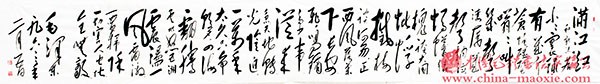 满江红
小小寰球
有几个苍
蝇碰壁
嗡嗡叫
几声凄厉
几声抽泣
蚂蚁缘槐
夸大国
蚍蜉
撼树
谈何易
正西风落叶
下长安
飞鸣镝
多少事
从来急
天地转
光阴迫
一万年
太久
只争朝夕
四海翻腾
云水怒
五洲震荡
风雷激
要扫除
一切害人虫
全无敌
毛泽东
一九六三年
www.china-maoxie.com